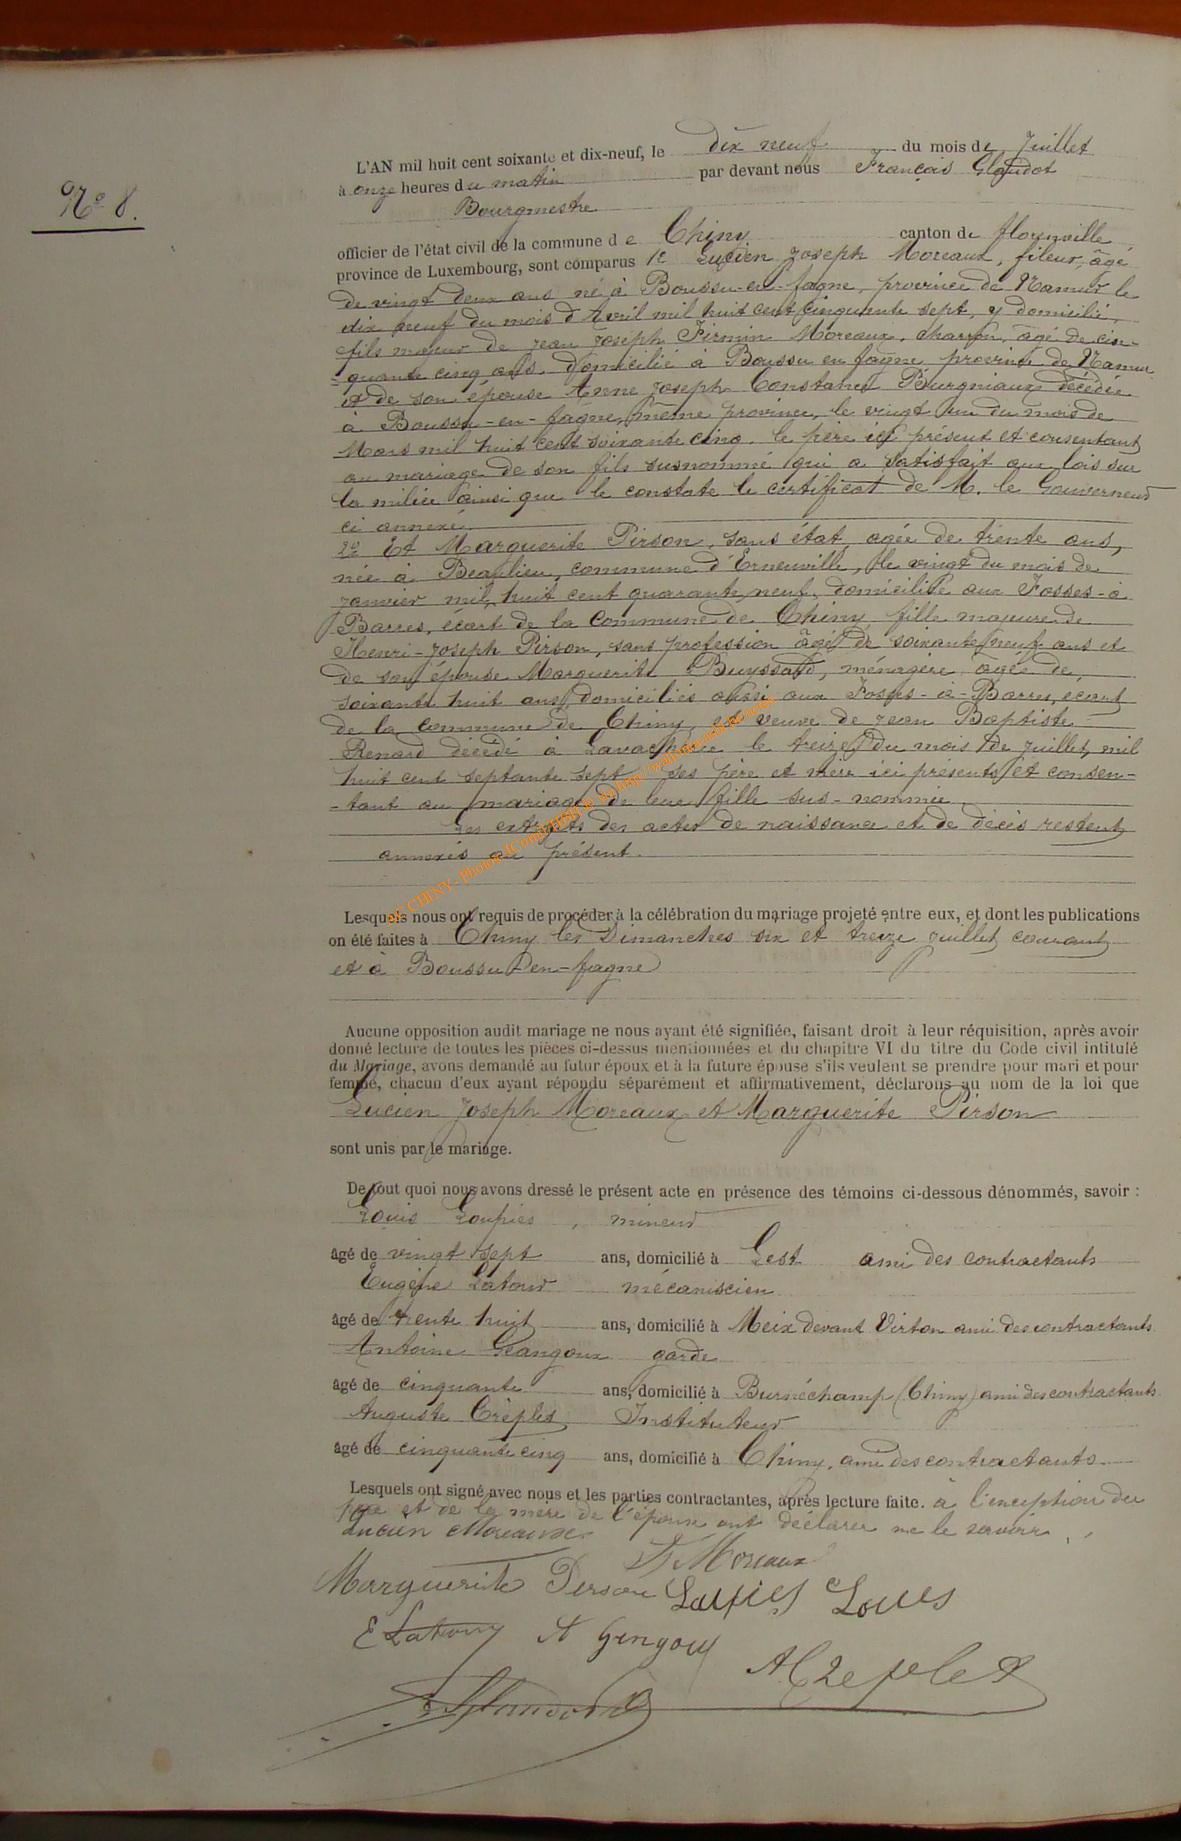 N° 8.
L'AN mil huit cent soixante et dix-neuf, le dix neuf du mois de Juillet
à onze heures du matin par devant nous François Glaudot
Bourgmestre
officier de l'état civil de la commune de Chiny canton de florenville
province de Luxembourg, sont comparus 1° Lucien Joseph Moreaux, fileur, âgé
de vingt deux ans né à Boussu-en-fagne, province de Namur le
dix neuf du mois d'Avril mil huit cent cinquante sept, y domicilié,
fils majeur de Jean Joseph Firmin Moreaux, charron, âgé de cin-
quante cinq ans, domicilié à Boussu en fagne province de Namur
et de son épouse Anne Joseph Constance Burgniaux décédée
à Boussu-en-fagne, même province, le vingt un du mois de
Mars mil huit cent soixante cinq. le père ici présent et consentant
au mariage de son fils susnommé qui a satisfait aux lois sur
la milice ainsi que le constate le certificat de M. le Gouverneur
ci annexé.
2° Et Marguerite Pirson, sans état, agée de trente ans,
née à Beaulieu, commune d'Erneuville, le vingt du mois de
janvier mil huit cent quarante neuf, domiciliée aux Fosses-à-
Barres, écart de la commune de Chiny fille majeure de
Henri-Joseph Pirson, sans profession âgé de soixante neuf ans et
de son épouse Marguerite, ménagère agée de
soixante huit ans domiciliés aussi aux Fosses-à-Barres, écart
de la commune de Chiny, et veuve de Jean Baptiste
Renard décédé à Lavacherie le treize du mois de juillet mil
huit cent septante sept ses père et mère ici présents et consen-
-tant au mariage de leur fille sus-nommée
Les extraits des actes de naissance et de décès restent
annexés au présent.
AC CHINY - Photos
Lesquels nous ont requis de procéder à la célébration du mariage projeté entre eux, et dont les publications
on été faites à Chiny les Dimanches six et treize juillet courant
et à Boussu en-fagne
Aucune opposition audit mariage ne nous ayant été signifiée, faisant droit à leur réquisition, après avoir
donné lecture de toutes les pièces ci-dessus mentionnées et du chapitre VI du titre du Code civil intitulé
du Mariage, avons demandé au futur époux et à la future épouse s'ils veulent se prendre pour mari et pour
femme, chacun d'eux ayant répondu séparément et affirmativement, déclarons au nom de la loi que
Lucien Joseph Moreaux et Marguerite Pirson
sont unis par le mariage.
De tout quoi nous avons dressé le présent acte en présence des témoins ci-dessous dénommés, savoir :
Louis Loupies, mineur
âgé de vingt sept ans, domicilié à Gest ami des contractants
Eugène Latour mécaniscien
âgé de trente huit ans, domicilié à Meix devant Virton ami des contractants
Antoine garde
âgé de cinquante ans, domicilié à Burnéchamp (Chiny) ami des contractants
Auguste Crèplet Instituteur
âgé de cinquante cinq ans, domicilié à Chiny, ami des contractants
Lesquels ont signé avec nous et les parties contractantes, après lecture faite. à l'exception du
père et de la mère de l'épouse ont déclarer ne le savoir
Lucien Moreaux
Moreaux
Marguerite Pirson Loupies Louis
E Latour A Gengoux
A Creplet
Glaudot